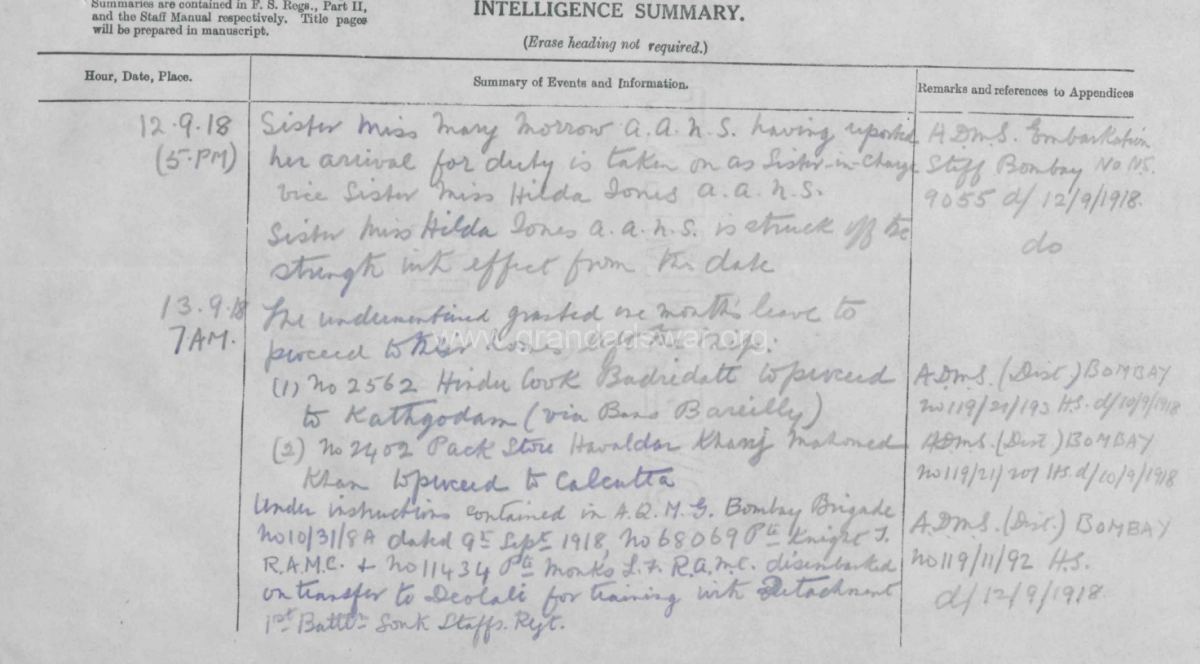 Summaries are contained in F. S. Regs., Part II,
and the Staff Manual respectively. Title pages
will be prepared in manuscript.
INTELLIGENCE SUMMARY.
(Erase heading not required.)
Hour, Date, Place.
Summary of Events and Information.
Remarks and references to Appendices
12.9.18
(5.PM)
Sister Miss Mary Morrow A.A.N.S. having reported
her arrival for duty is taken on as Sister-in-Charge
vice Sister Miss Hilda Jones A.A.N.S.
Sister Miss Hilda Jones A.A.N.S. is struck off the
strength with effect from this date
A.D.M.S. Embarkation
Staff Bombay No NS.
9055 d/ 12/9/1918.
do
13.9.18
7AM.
The undermentioned granted one month's leave to
proceed to their homes
(1) No 2562 Hindu Cook Badridatt to proceed
to Kathgodam (via Bans Bareilly)
(2) No 2402 Pack Store Havaldar Mahomed
Khan to proceed to Calcutta
Under instructions contained in A.Q.M.G. Bombay Brigade
No 10/31/8A dated 9th Sept 1918, No 68069 Pte Knight J.
R.A.M.C. & No 11434 Pte Monks L.F. R.A.M.C. disembarked
on transfer to Deolali for training with Detachment
1st Battn South Staffs. Rgt.
A.D.M.S. (Dist) BOMBAY
No 119/21/193 H.S. d/10/9/1918
A.D.M.S. (Dist) BOMBAY
No 119/21/207 H.S. d/10/9/1918
A.D.M.S. (Dist.) BOMBAY
No 119/11/92 H.S.
d/12/9/1918
www.grandadswar.org